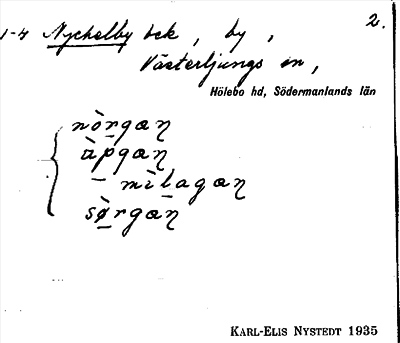 2.
1-4 Nyckelby bck, by,
Västerljungs sn,
Hölebo hd, Södermanlands län
nòrgaŋ
ùpgaŋ
– mìlagaŋ
sø̀rgaŋ
KARL-ELIS NYSTEDT 1935